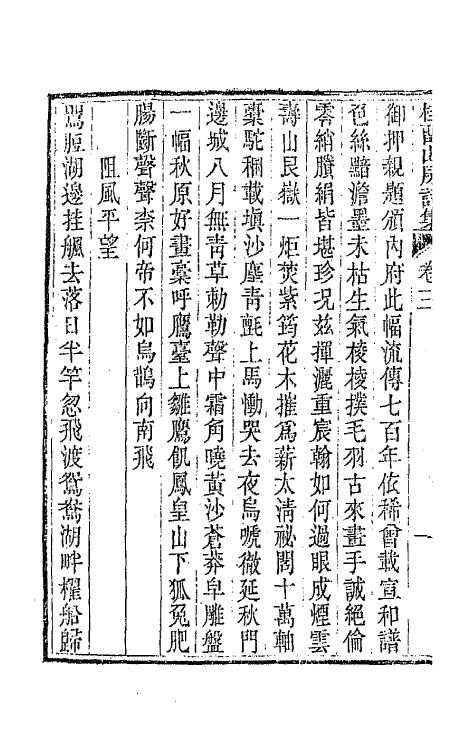 桂留山房詩集 卷三 一
御押親題頒內府此幅流傳七百年依稀曾載宣和譜
色絲黯澹墨未枯生氣稜稜撲毛羽古來畫手誠絕倫
零綃賸絹皆堪珍況茲揮灑重宸翰如何過眼成煙雲
壽山艮嶽一炬焚紫筠花木摧爲薪太淸祕閣十萬軸
橐駝稛載塡沙塵靑氈上馬慟哭去夜烏嗁徹延秋門
邊城八月無靑草勅勒聲中霜角曉黃沙蒼莽皁雕盤
一幅秋原好畫稾呼鷹臺上雛鷹飢鳳皇山下狐兔肥
腸斷聲聲柰何帝不如烏鵲向南飛
阻風平望
鶯脰湖邊挂颿去落日半竿忽飛渡鴛鴦湖畔櫂船歸